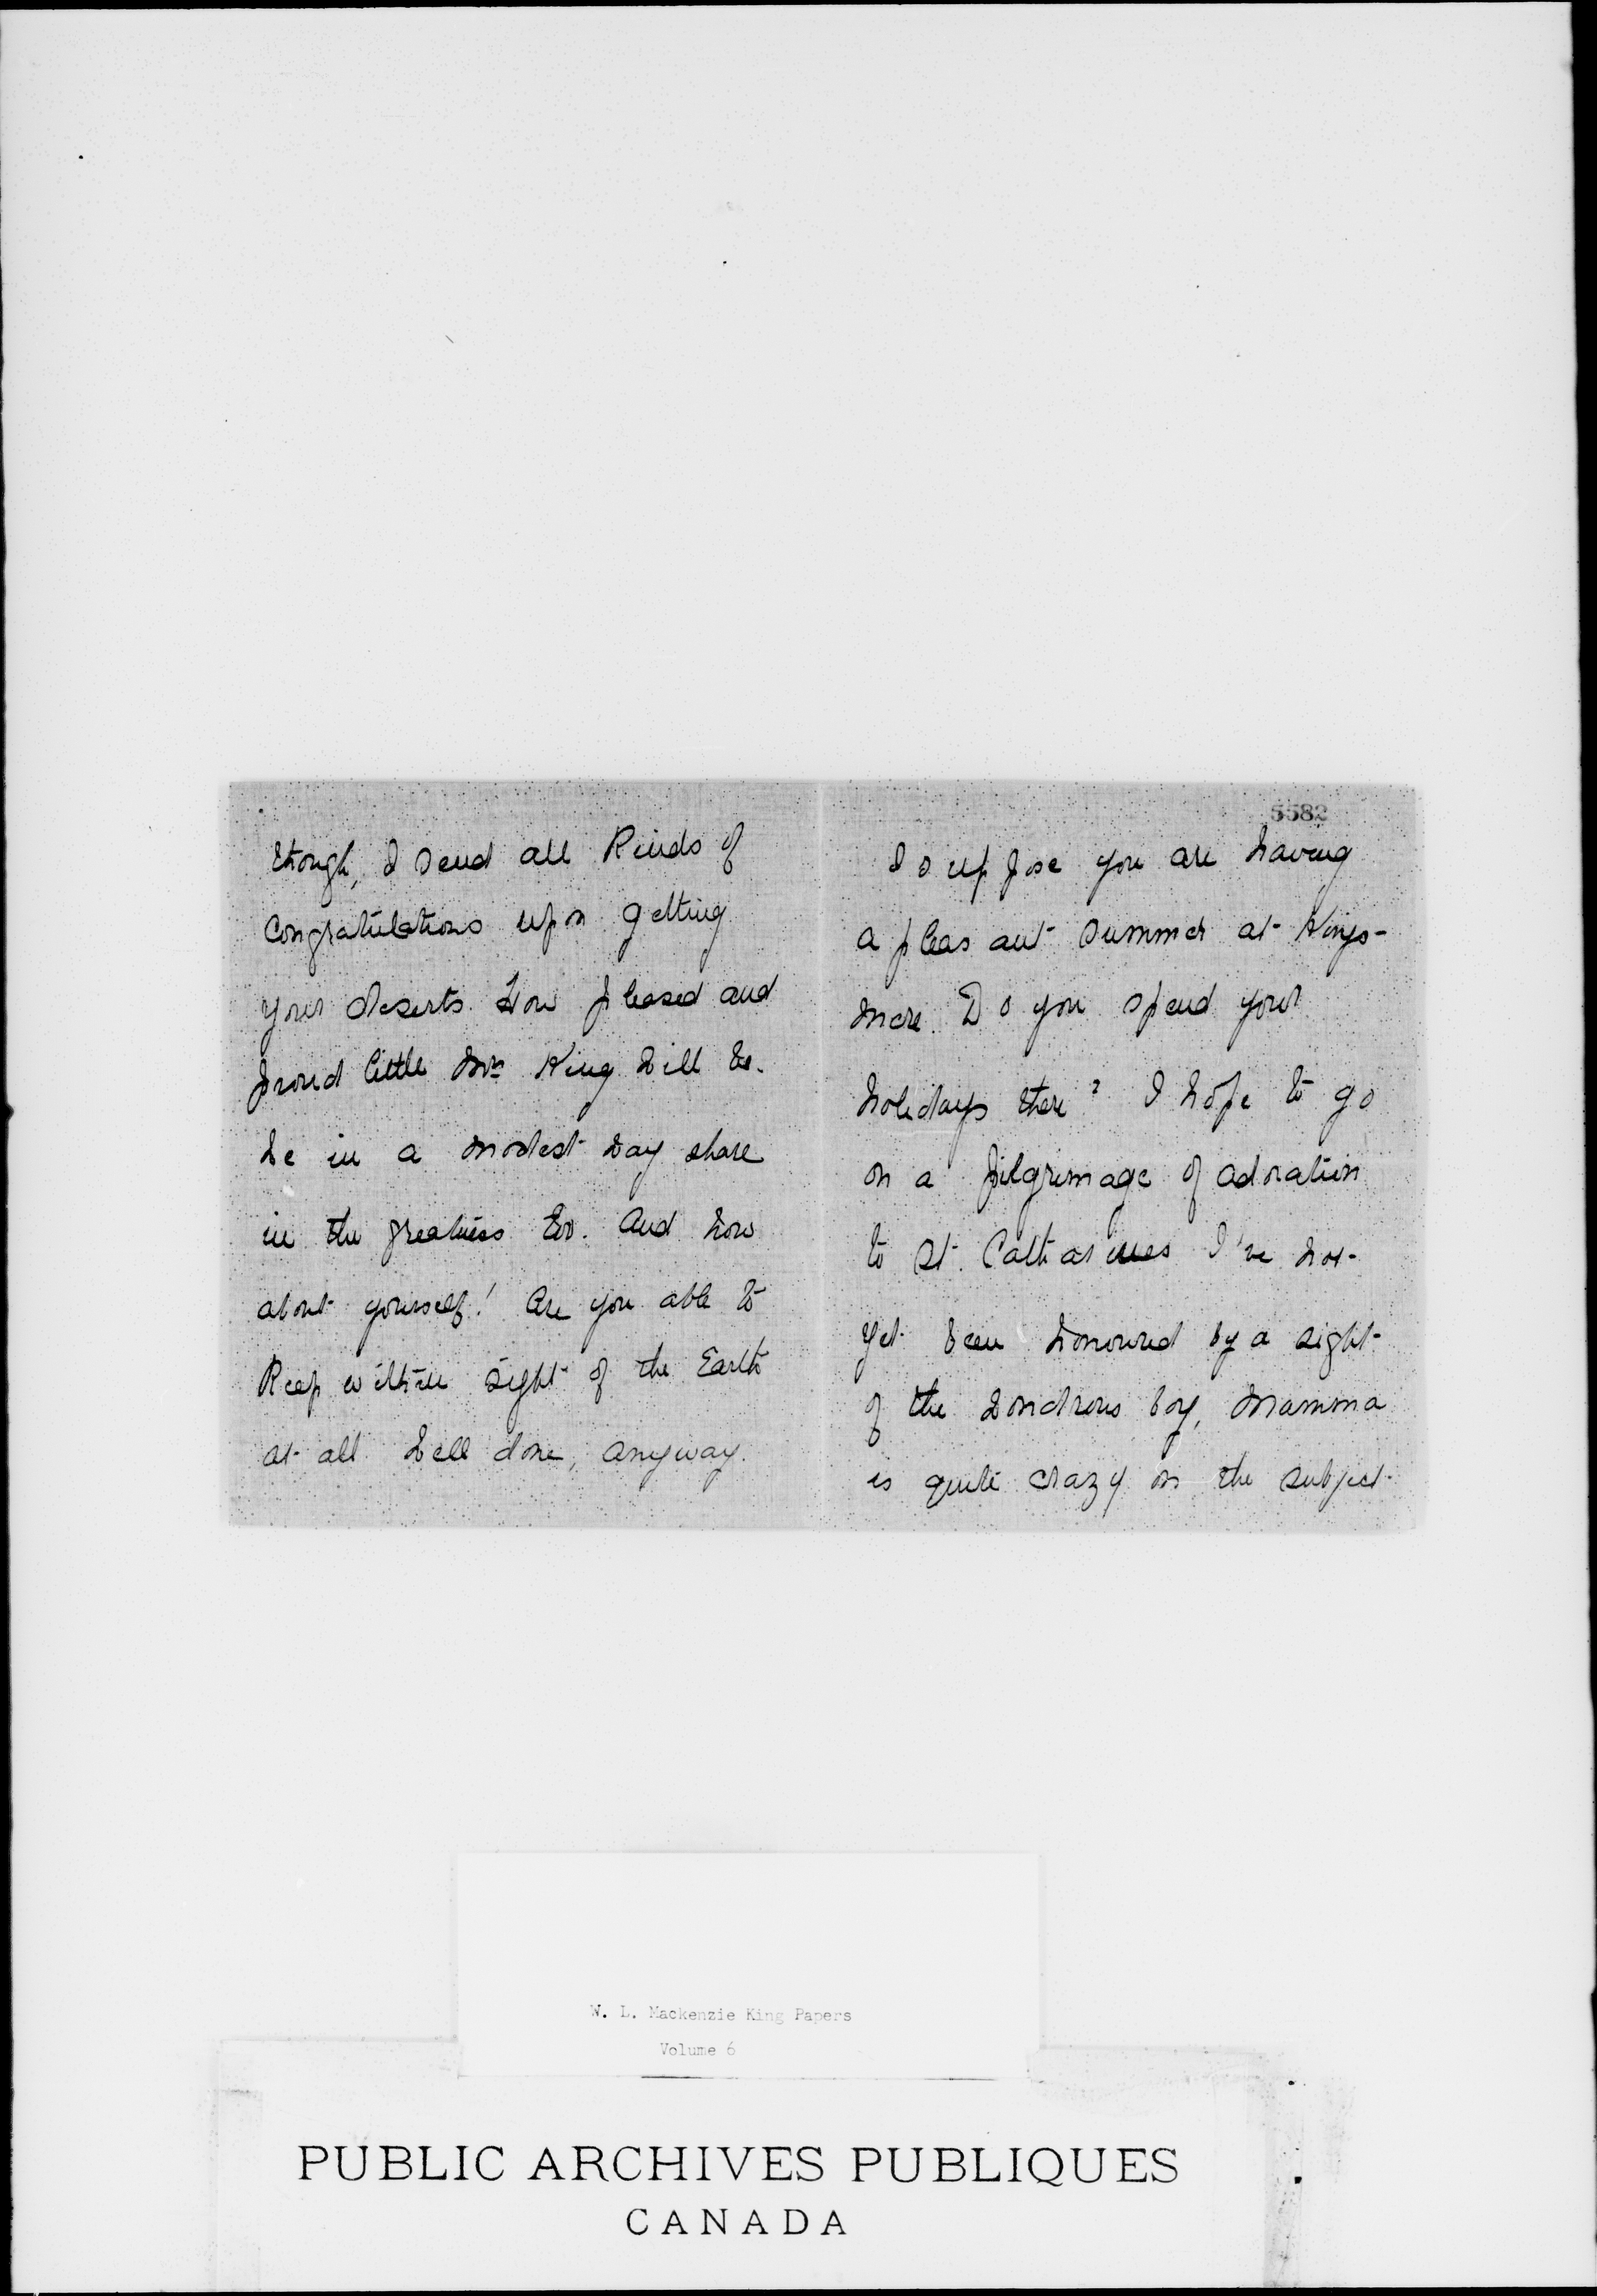 though, I send all kinds of
congratulations upon getting
your deserts. How pleased and
proud little Mrs King will be.
We in a modest way share
in the greatness too. And how
about yourself! Are you able to
keep within sight of the Earth
at all. Well done, anyway.
5582
I suppose you are having
a pleasant summer at Kings-
mere. Do you spend your
holidays there? I hope to go
on a pilgrimage of adoration
to St. Catharines I've not
yet been honoured by a sight
of the wondrous boy, Mamma
is quite crazy on the subject
W. L. Mackenzie King Papers
Volume 6
PUBLIC ARCHIVES PUBLIQUES
CANADA